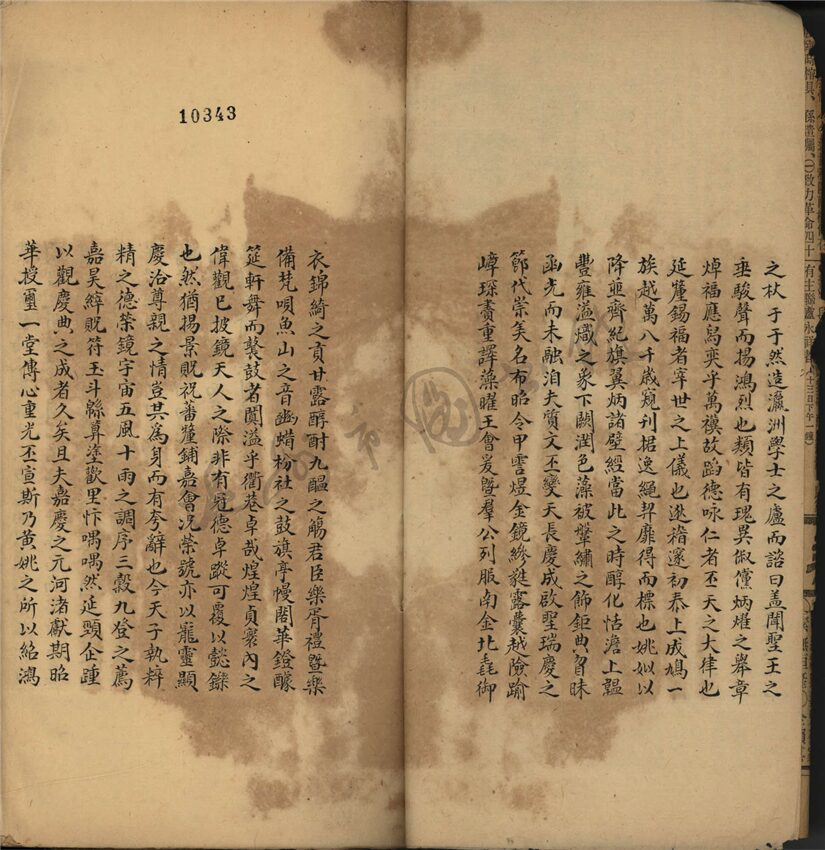 之杖于于然造瀛洲學士之廬而諮曰盖聞聖王之
垂駿聲而揚鴻烈也類皆有瑰異俶儻炳燿之舉章
焯福應舄奕乎萬禩故蹈德咏仁者丕天之大律也
延釐錫福者宰世之上儀也逖稽邃初泰上成鳩一
族越萬八千歲窺刊据逸繩契靡得而標也姚姒以
降亟齊紀旗翼炳諸壁經當此之時醇化恬澹上韞
豐雍溢熾之象下闕潤色藻被鞶繡之飾鉅典曶昧
函光而未融洎夫質文丕變天長慶成啟聖瑞慶之
節代崇美名布昭令甲雲煜金鏡縿蕤露囊越險踰
嶂琛賮重譯藻曜王會爰曁羣公列服南金北毳御
衣錦綺之貢甘露醇酎九醖之觴君臣樂胥禮曁樂
備梵唄魚山之音豳蜡枌社之鼓旗亭幔閣華鐙醵
筵軒舞而鼚鼓者闐溢乎衢巷卓哉煌煌貞褱內之
偉觀已披鏡天人之際非有冠德卓蹤可覆以懿鑠
也然猶揚景貺祝蕃釐鋪嘉會况榮號亦以寵靈顯
慶洽尊親之情豈其為身而有夸辭也今天子執粹
精之德榮鏡宇宙五風十雨之調序三穀九登之薦
嘉昊縡貺符玉斗緜算塗歡里忭喁喁然延頸企踵
以觀慶典之成者久矣且夫嘉慶之元河渚獻期昭
華授璽一堂傳心重光丕宣斯乃黃姚之所以紹鴻
10343